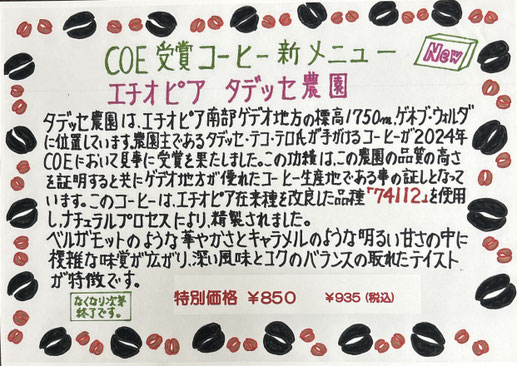 COE受賞コーヒー新メニュー
New
エチオピア タデッセ農園
タデッセ農園は、エチオピア南部ゲデオ地方の標高1750m、ゲネブ・ウォルダ
に位置しています。農園主であるタデッセ・テコ・テロ氏が手がけるコーヒーが2024年
COEにおいて見事に受賞を果たしました。この功績は、この農園の品質の高さ
を証明すると共にゲデオ地方が優れたコーヒー生産地である事の証しとなって
います。このコーヒーは、エチオピア在来種を改良した品種「74112」を使用
し、ナチュラルプロセスにより、精製されました。
ベルガモットのような華やかさとキャラメルのような明るい甘さの中に
複雑な味覚が広がり、深い風味とコクのバランスの取れたテイスト
が特徴です。
なくなり次第
終了です。
特別価格 ¥850 ¥935(税込)